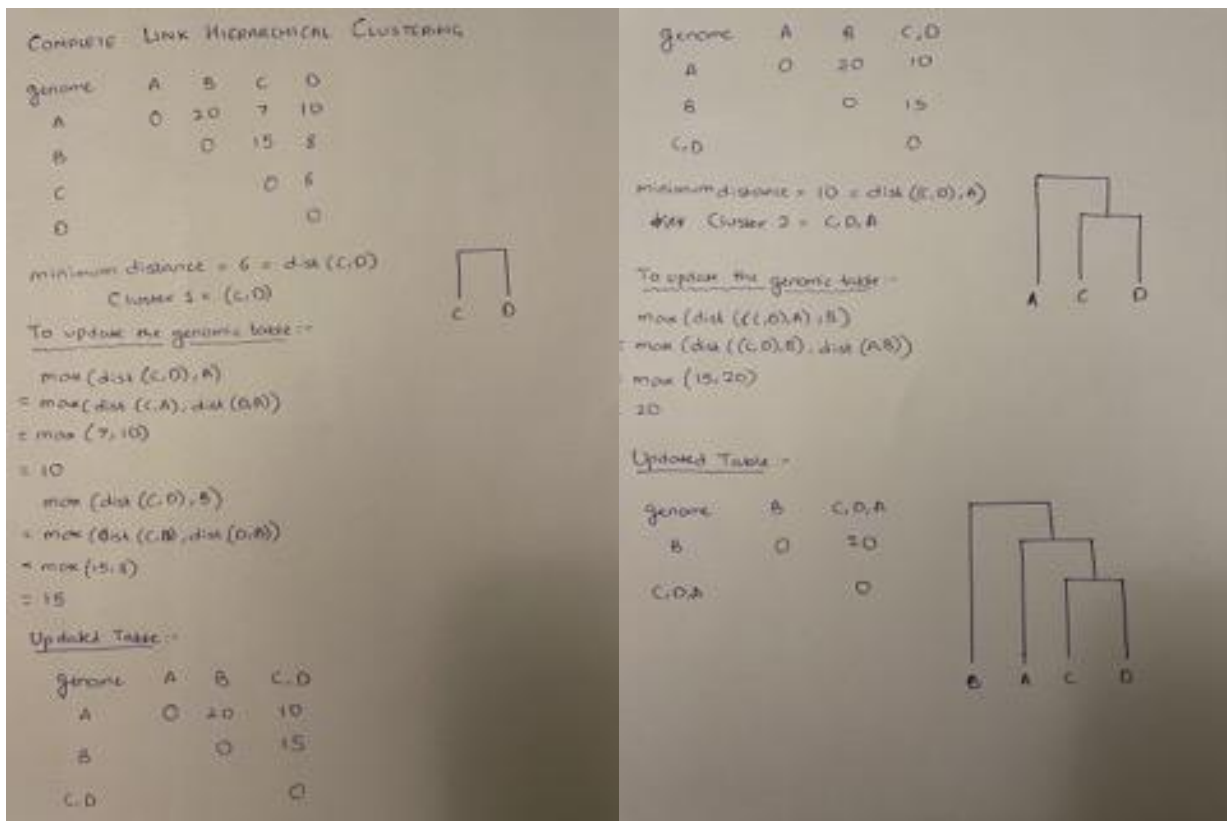 COMPLETE LINK HIERARCHICAL CLUSTERING
genome A B C D
A 0 20 7 10
B 0 15 8
C 0 6
D 0
minimum distance = 6 = dist (C,D)
Cluster 1 = (C,D)
To update the genomic table :-
max (dist (C,D), A)
= max (dist (C,A), dist (D,A))
= max (7, 10)
= 10
max (dist (C,D), B)
= max (dist (C,B), dist (D,B))
= max (15, 8)
= 15
Updated Table :-
genome A B C,D
A 0 20 10
B 0 15
C,D 0
C D
genome A B C,D
A 0 20 10
B 0 15
C,D 0
minimum distance = 10 = dist ((C,D), A)
Cluster 2 = C,D,A
To update the genomic table :-
max (dist ((C,D),A), B)
= max (dist ((C,D),B), dist (A,B))
= max (15, 20)
20
A C D
Updated Table :-
genome B C,D,A
B 0 20
C,D,A 0
B A C D